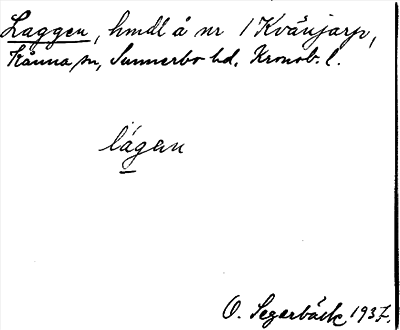 Laggen, hmdl å nr 1 Kvänjarp,
Kånna sn, Sunnerbo hd. Kronob. l.
lágan
O. Segerbäck 1937.